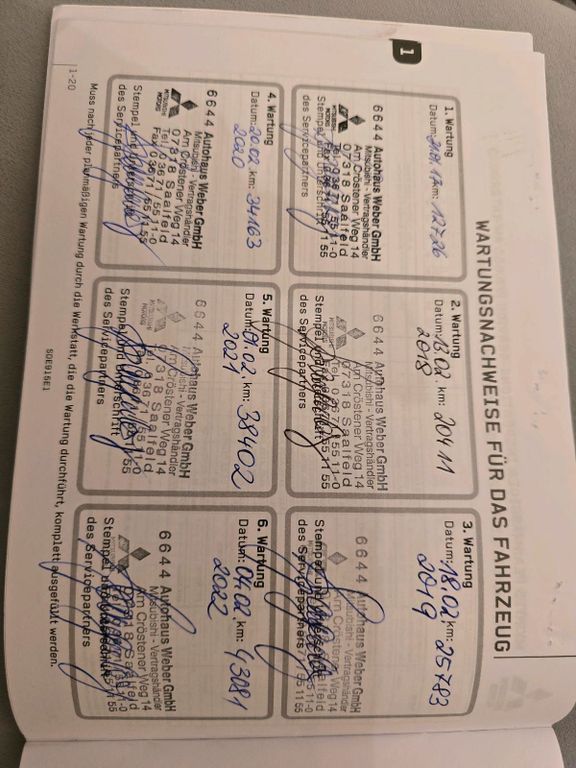 1
WARTUNGSNACHWEISE FÜR DAS FAHRZEUG
1. Wartung
Datum: km: 12726
6644 Autohaus Weber GmbH
Mitsubishi - Vertragshändler
Am Cröstener Weg 14
07318 Saalfeld
Stempel und Unterschrift
des Servicepartners
2. Wartung
Datum: 13.02. km: 20411
2018
6644 Autohaus Weber GmbH
Mitsubishi - Vertragshändler
Am Cröstener Weg 14
07318 Saalfeld
Stempel und Unterschrift
des Servicepartners
3. Wartung
Datum: 18.02. km: 25783
2019
6644 Autohaus Weber GmbH
Mitsubishi - Vertragshändler
Am Cröstener Weg 14
Saalfeld
Stempel und
des Servicepartners
4. Wartung
Datum: 20.02. km: 34163
2020
6644 Autohaus Weber GmbH
Mitsubishi - Vertragshändler
Am Cröstener Weg 14
07318 Saalfeld
MITSUBISHI MOTORS
Tel. 03671 / 55 11-0
Fax 03671 / 55 11 55
Stempel und Unterschrift
des Servicepartners
5. Wartung
Datum: 01.02. km: 38402
2021
6644 Autohaus Weber GmbH
Mitsubishi - Vertragshändler
Am Cröstener Weg 14
07318 Saalfeld
Stempel und Unterschrift
des Servicepartners
6. Wartung
Datum: 04.02. km: 43081
2022
6644 Autohaus Weber GmbH
Mitsubishi - Vertragshändler
Am Cröstener Weg 14
07318 Saalfeld
Stempel und
des Servicepartners
Muss nach jeder planmäßigen Wartung durch die Werkstatt, die die Wartung durchführt, komplett ausgefüllt werden.
1-20
S0E915E1